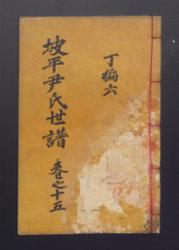 丁編六
坡平尹氏世譜
卷之十五